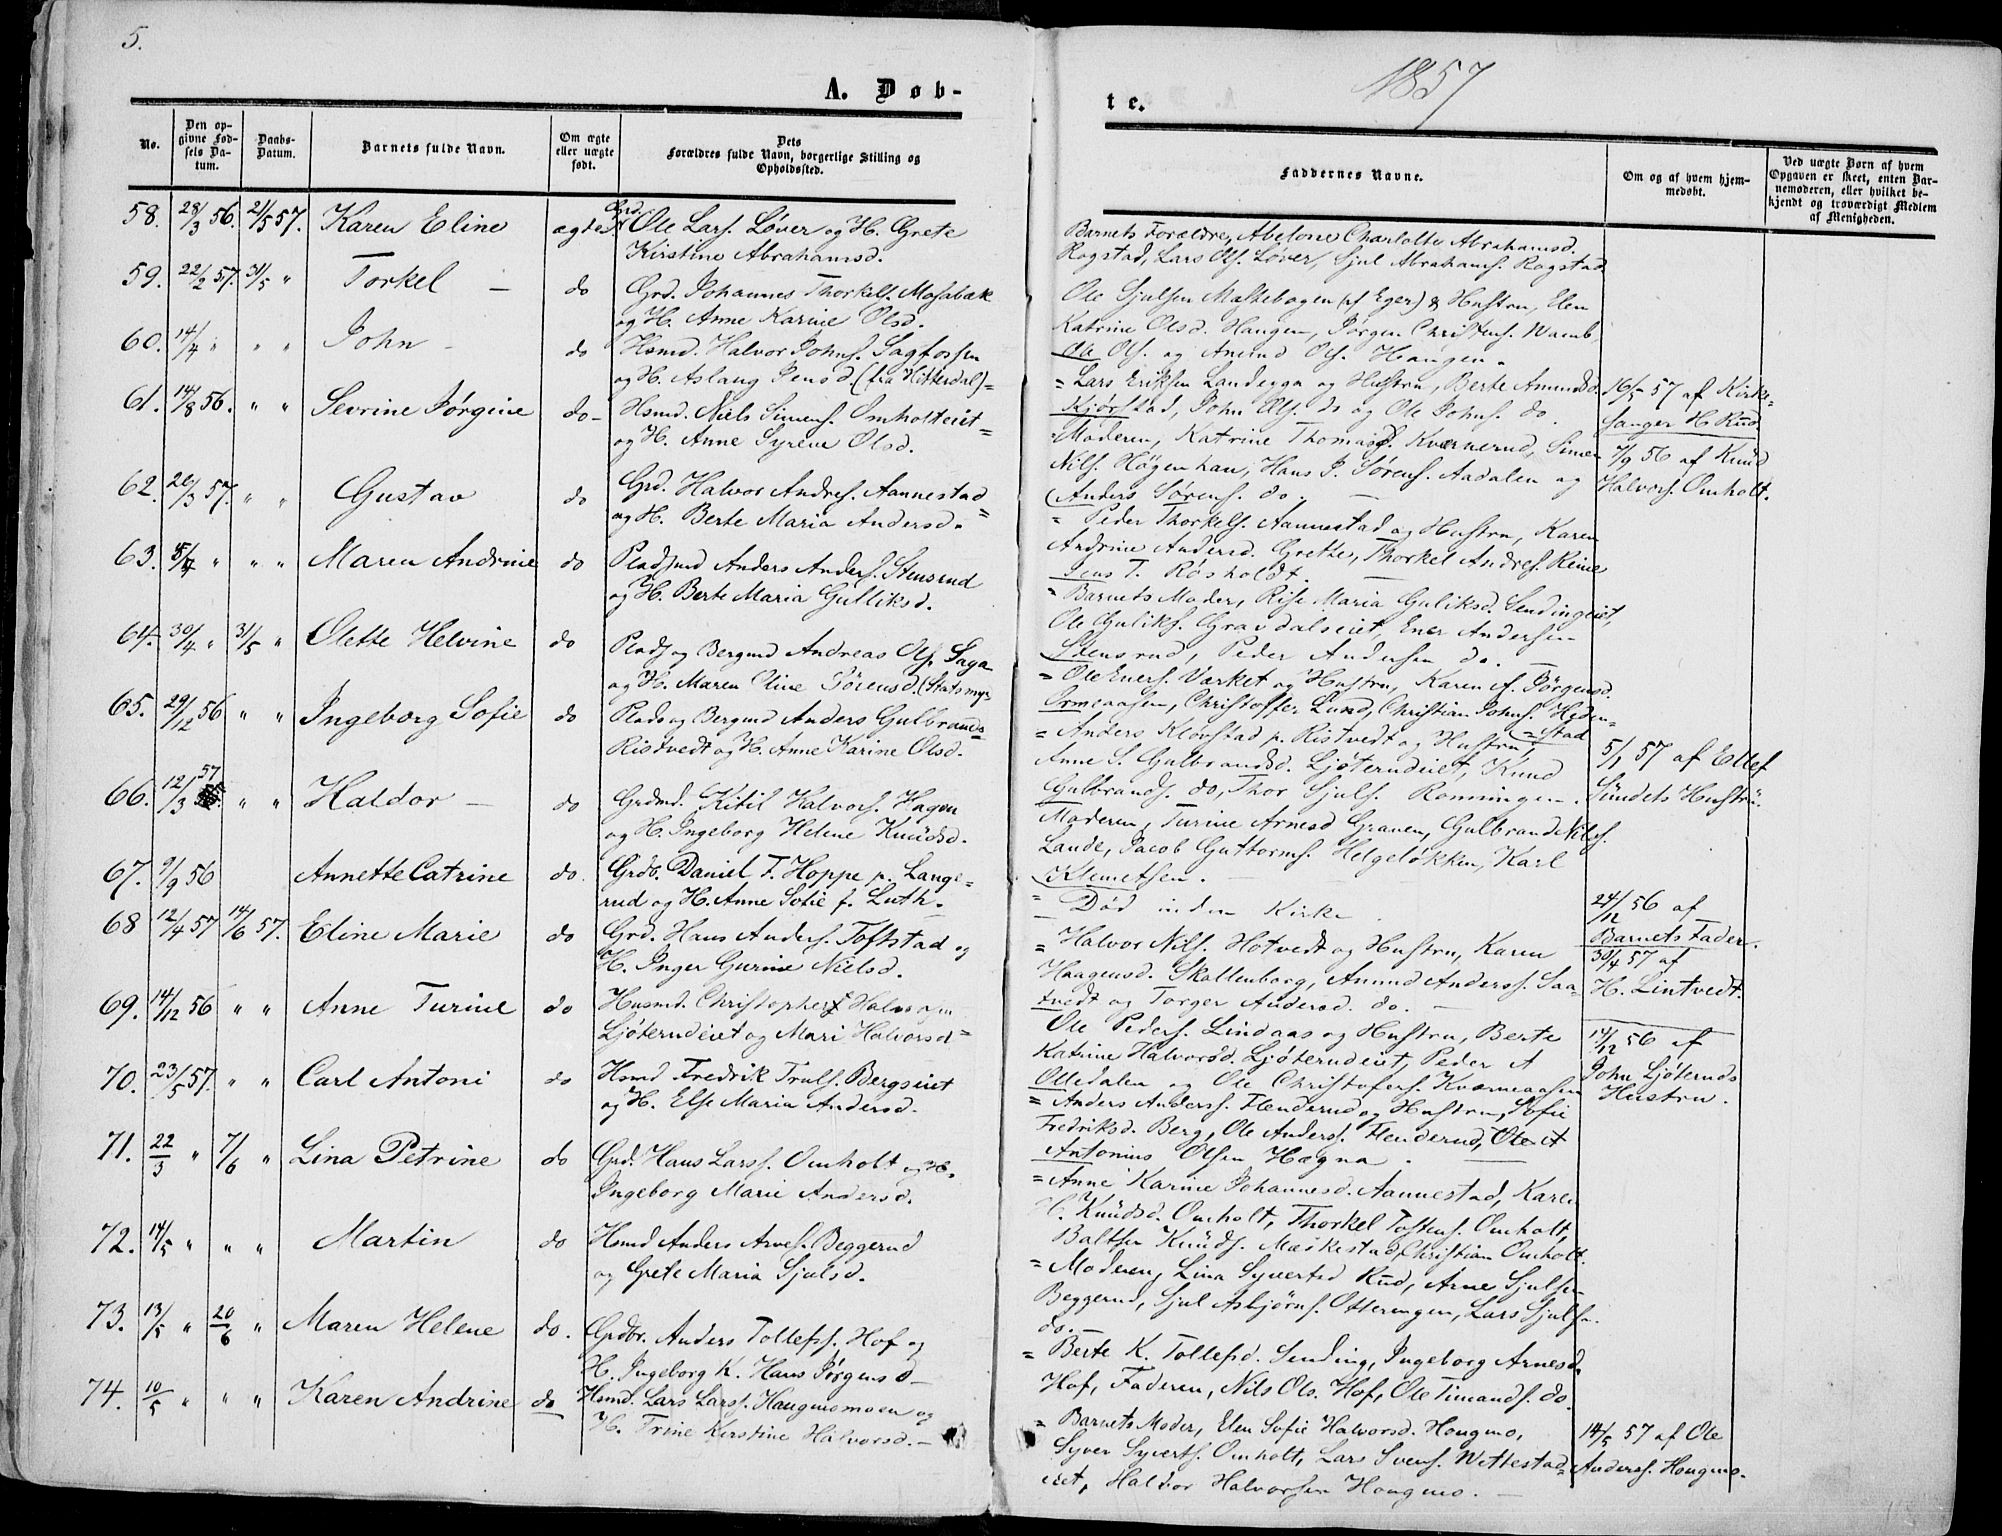 5.
A. Døb-
No.
Den op-
givne Fød-
sels Da-
tum.
Daabs-
Datum.
Barnets fulde Navn.
Om ægte
eller uægte
født.
Dets
Forældres fulde Navn, borgerlige Stilling og
Opholdssted.
58. 28/3 56. 21/5 57. Karen Eline ægtef. Grd. Ole Lars. Løver og H. Grete
Kirstine Abrahamsd.
59. 22/2 57. 31/5 " Torkel – do Grd. Johannes Thorkels. Mosabæk
og H. Anne Karine Olsd.
60. 14/4 " " " John – do Hsmd. Halvor Johns. Sagfossen
og H. Aslaug Jensd. (fra Hitterdal) =
61. 14/8 56. " " Sevrine Jørgine do – Hsmd. Niels Simens. Omholteiet =
og H. Anne Syrene Olsd.
62. 20/3 57. " " Gustav do Grd. Halvor Andres. Aannestad
og H. Berte Maria Andersd. =
63. 5/4 " " " Maren Andrine do Pladsmd Anders Anders. Stensrud
og H. Berte Maria Gulliksd.
64. 30/4 " 31/5 " Olette Helvine do Plads og Bergmd Andreas Ols. Saga
og H. Maren Eline Sørensd. (Statsmyr
65. 29/12 56 " " Ingeborg Sofie do Plads og Bergmd Anders Gulbrands =
Ristvedt og H. Anne Karine Olsd.
66. 12/3 57 " " Haldor – do Grdmd. Kitil Halvors. Hagen
og H. Ingeborg Helene Knudsd.
67. 9/9 56 Annette Catrine do. Grdb. Daniel F. Hoppe p. Lange =
rud og H. Anne Sofie f. Luth.
68 12/4 57 14/6 57. Eline Marie do Grd. Hans Anders. Toftstad og
H. Inger Gurine Nielsd.
69. 14/12 56 " " Anne Turine do Husmd. Christopher Halvorsen
Ljøterudeiet og Mari Halvorsd =
70. 23/5 57. " " Carl Antoni do Hsmd Fredrik Truls. Bergseiet
og H. Else Maria Andersd.
71. 22/3 " 7/6 " Lina Petrine do Grd. Hans Larss. Omholt og H.
Ingeborg Marie Andersd.
72. 14/5 " " " Martin do Hsmd Anders Arnes. Beggerud
og Grete Maria Sjulsd.
73. 13/5 " 20/6 " Maren Helene do. Grdbr. Anders Tollefss. Hof og
H. Ingeborg K. Hans Jørgensd –
74. 10/5 " " " Karen Andrine do Hsmd. Lars Larss. Haugmomoen og
H. Trine Kirstine Halvorsd. –
1857
te.
Faddernes Navne.
Om og af hvem hjem-
medøbt.
Ved uægte Børn af hvem
Opgaven er skeet, enten Bar-
nemoderen, eller hvilket be-
kjendt og troværdigt Medlem
af Menigheden.
Barnets Forældre, Abelone Charlotte Abrahamsd.
Rogstad, Lars Ols. Løver, Sjul Abrahams. Rogstad
Ole Sjulsen Maskebogen (af Eger) & Hustru, Elen
Katrine Olsd. Haugen, Jørgen Christens. Wamb
Ole Ols. og Amund Ols. Haugen.
= Lars Eriksen Landeygn og Hustru, Berte Amundsd.
Kjørstad, John Ells. do og Ole Johns. do.
16/5 57 af Kirke =
sanger H. Rud
= Moderen, Katrine Thomasd. Kværnerud, Simen
Nils. Högenhan, Hans J. Sørens. Aadalen og
Anders Sørens. do. –
7/9 56 af Knud
Halvors. Omholt.
= Peder Thorkels. Aannestad og Hustru, Karen
Andrine Andersd. Grette, Thorkel Andres. Reine
Jens T. Rösholdt. –
= Barnets Moder, Rise Maria Guliksd. Sendingeiet,
Ole Guliks. Gravdalseiet, Ener Andersen
Stensrud, Peder Andersen do. –
= Ole Eners. Værket og Hustru, Karen A. Jörgensd.
Ormeaasen, Christoffer Lund, Christian Johns. Heden =
= stad
= Anders Klovstad p. Ristvedt og Hustru,
Anne S. Gulbrandsd. Ljøterudeiet, Knud
Gulbrands. do, Thor Sjuls. Rønningen.
5/1 57 af Ellef
Sundets Hustru.
Moderen, Turine Arnesd Graven, Gulbrand Nils.
Lande, Jacob Guttorms. Helgeløkken, Karl
Klemetsen. –
= Død inden Kirke
24/12 56 af
Barnets Fader.
= Halvor Nils. Hotvedt og Hustru, Karen
Haagensd. Skollenborg, Amund Anderss. Saa =
tvedt og Torger Andersd. do. –
30/4 57 af
H. Lintvedt.
Ole Peders. Lindaas og Hustru, Berte
Katrine Halvorsd. Ljøterudeiet, Peder A
Olledalen og Ole Christofers. Kvæneaasen
14/12 56 af
John Ljøteruds
Hustru.
= Anders Anderss. Flenderud og Hustru, Sofie
Fredriksd. Berg, Ole Anderss. Flenderud, Ole A
Antonius Olsen Hægna. –
= Anne Karine Johannesd. Aannestad, Karen
H. Knudsd. Omholt, Thorkel Tostens. Omholt,
Baltser Knuds. Mæskestad, Christian Omholt.
= Moderen, Lina Syvertsd Rud, Arne Sjulsen
Beggerud, Sjul Asbjørns. Otteringen, Lars Sjulsn.
do. –
= Berte K. Tollefsd. Sending, Ingeborg Arnesd.
Hof, Faderen, Nils Ols. Hof, Ole Timands. do.
= Barnets Moder, Elen Sofie Halvorsd. Hougmo,
Syver Syverts. Omholt, Lars Svens. Wettestad =
eiet, Haldor Halvorsen Hougmo. –
14/5 57 af Ole
Anderss. Hougmo.